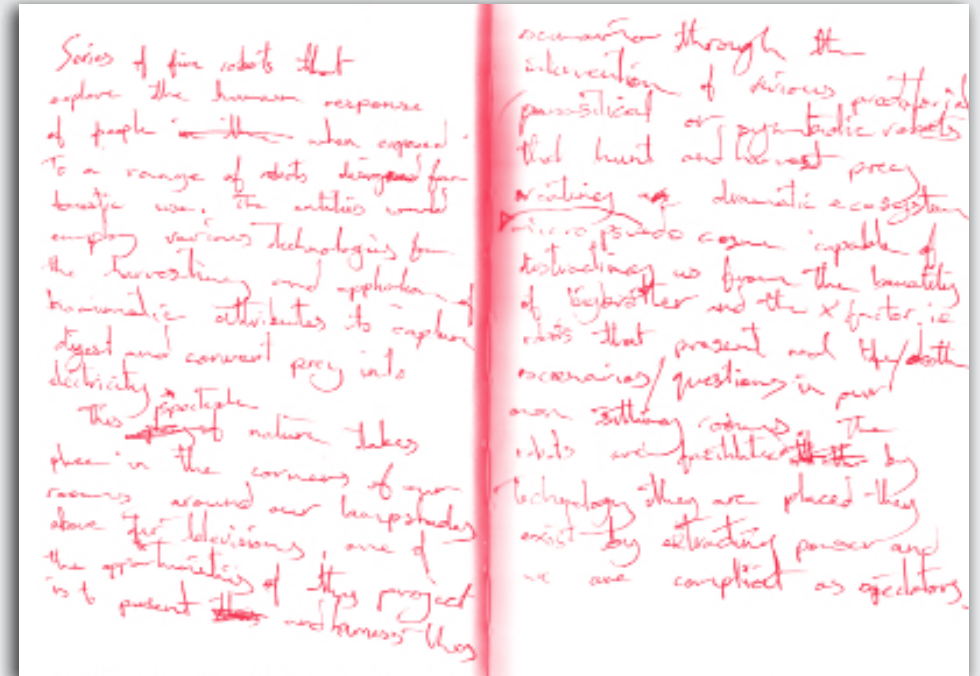 Series of five robots that
explore the human response
of people when exposed
to a range of robots designed for
domestic use. The entities would
employ various technologies for
the harvesting and application of
attributes to capture
digest and convert prey into
electricity.
This spectacle
of nature takes
place in the corners of our
rooms around our lampshades
above our televisions, one of
the opportunities of this project
is to present and harness this
scenario through the
intervention of various
parasitical or robots
that hunt and harvest prey
creating dramatic ecosystem
micro pseudo cosm capable of
distracting us from the banality
of bigbrother and the X factor, ie
robots that present and life/death
scenarios/questions in our
own sitting rooms. The
robots are facilitated by
technology they are placed they
exist by extracting power and
we are complicit as spectators.